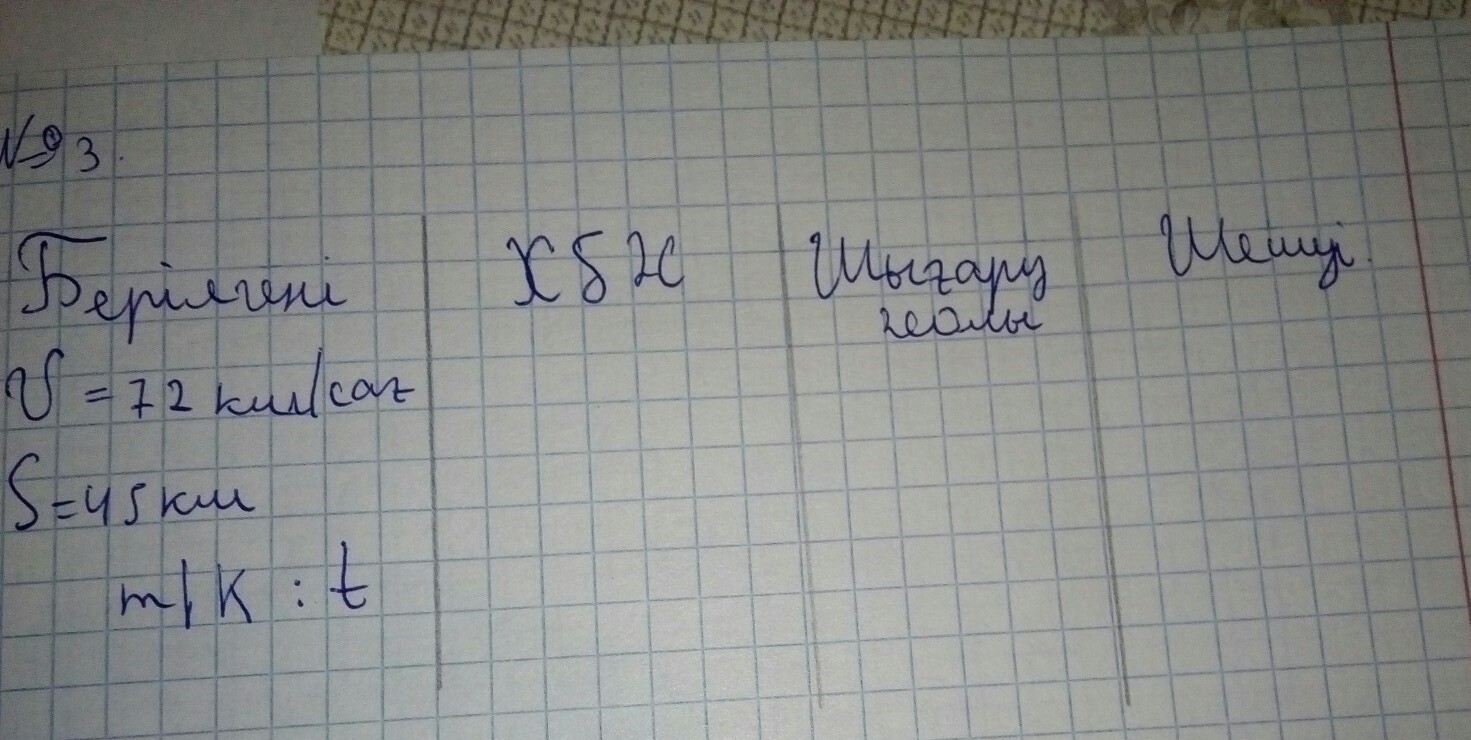 № 3.
Берілгені ХБЖ Шығару жолы Шешуі.
υ = 72 км/сағ
S = 45 км
т/к : t